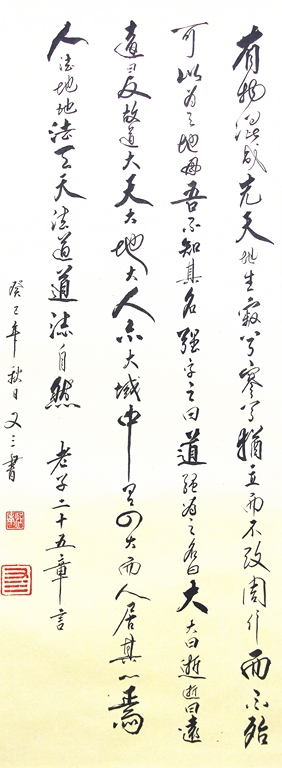 有物混成先天地生寂兮寥兮獨立而不改周行而不殆
可以为天地母吾不知其名强字之曰道强为之名曰大大曰逝逝曰遠
遠曰反故道大天大地大人亦大域中有四大而人居其一焉
人法地地法天天法道道法自然 老子二十五章言
癸巳年秋日又三書